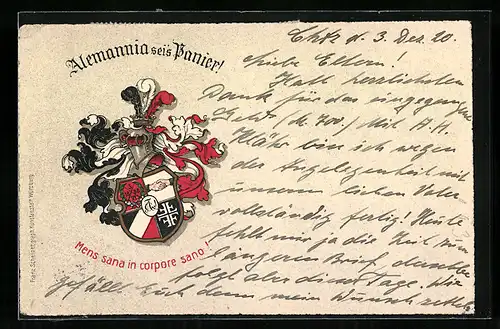 Alemannia seis Panier!
Mens sana in corpore sano!
Franz Scheiner graph. Kunstanstalt Würzburg
d. 3. Dez. 20.
Liebe Eltern!
Habt herzlichsten
Dank für das eingegangene
Geld (M. 700.) Mit H. H.
bin ich wegen
der Angelegenheit mit
unserem lieben Vater
vollständig fertig! Heute
fehlt mir ja die Zeit zum
längeren Brief, derselbe
folgt aber dieser Tage. Wie
gefällt Euch denn mein Wunsch